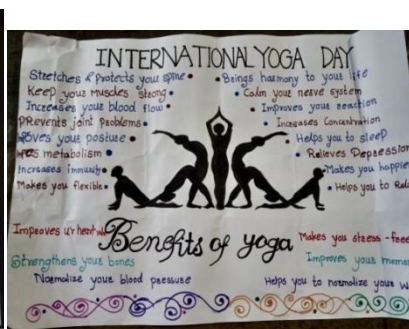 INTERNATIONAL YOGA DAY
Stretches & Protects your spine •
Keep your Muscles strong •
Increases your blood flow •
Prevents joint problems •
oves your posture •
metabolism •
Increases immunity •
Makes you flexible •
• Brings harmony to your life
• Calm your nerve system
• Improves your reaction
• Increases Concentration
• Helps you to sleep
• Relieves Depression
• Makes you happie
• Helps you to Rel
Benefits of yoga
Improves ur heart
Strengthens your bones
Normalize your blood pressure
Makes you stress-free
Improves your memo
Helps you to normalize your w